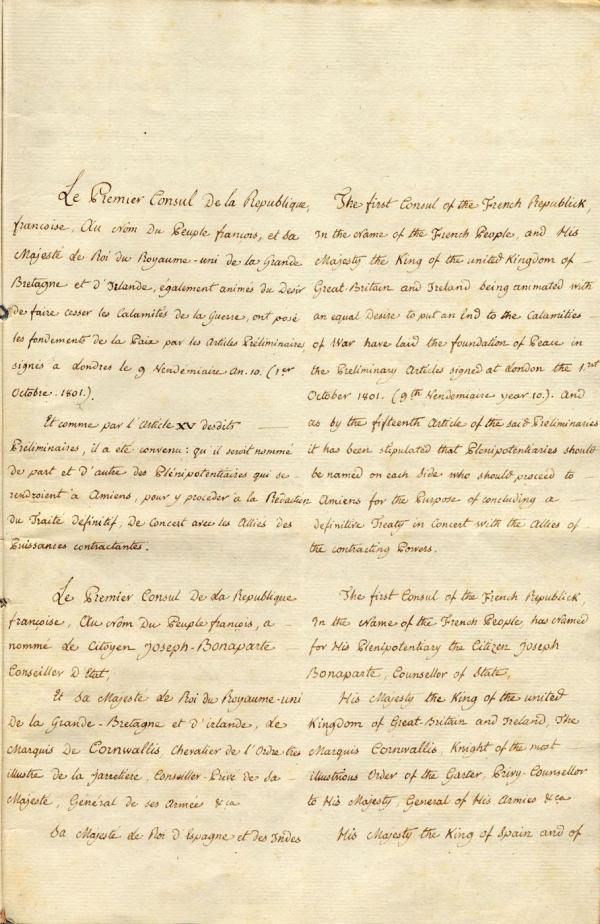 Le Premier Consul De la Republique,
françoise, Au Nom Du Peuple françois, et Sa
Majesté le Roi du Royaume-uni de la Grande
Bretagne et d'Irlande, également animés du Desir
de faire cesser les Calamités de la Guerre, ont posé
les fondements de la Paix par les Articles Préliminaires
signés à Londres le 9 Vendemiaire An. 10. (1er
Octobre. 1801.).
Et comme par l'Article XV desdits
Préliminaires, il a eté convenu: qu'il seroit nommé
de part et d'autre des Plénipotentiaires qui se
rendroient à Amiens, pour y procéder à la Rédaction
du Traité définitif, De Concert avec les Alliés des
Puissances contractantes.
Le Premier Consul De La Republique
françoise, Au Nom Du Peuple françois, a
nommé le Citoyen Joseph-Bonaparte
Conseiller d'Etat,
Et Sa Majesté le Roi du Royaume-uni
De la Grande-Bretagne et d'irlande, Le
Marquis De Cornwallis, Chevalier de l'Ordre très
illustre de la Jarretière, Conseiller-Privé de Sa
Majesté, Général de ses Armées &ca
Sa Majesté le Roi d'Espagne et des Indes
The first Consul of the French Republick,
In the Name of the French People, and His
Majesty the King of the united Kingdom of
Great-Britain and Ireland being animated with
an equal Desire to put an End to the Calamities
of War have laid the foundation of Peace in
the Preliminary Articles signed at London the 1.rst
October 1801. (9th Vendemiaire year 10.). And
as by the fifteenth Article of the said Preliminaries
it has been stipulated that Plenipotentiaries should
be named on each Side who should proceed to
Amiens for the Purpose of concluding a
definitive Treaty in Concert with the Allies of
the contracting Powers.
The first Consul of the French Republick,
In the Name of the French People, has Named
for His Plenipotentiary the Citizen Joseph
Bonaparte, Counsellor of State,
His Majesty the King of the united
Kingdom of Great-Britain and Ireland, The
Marquis Cornwallis, Knight of the most
illustrious Order of the Garter, Privy-Counsellor
to His Majesty, General of His Armies &ca
His Majesty the King of Spain and of